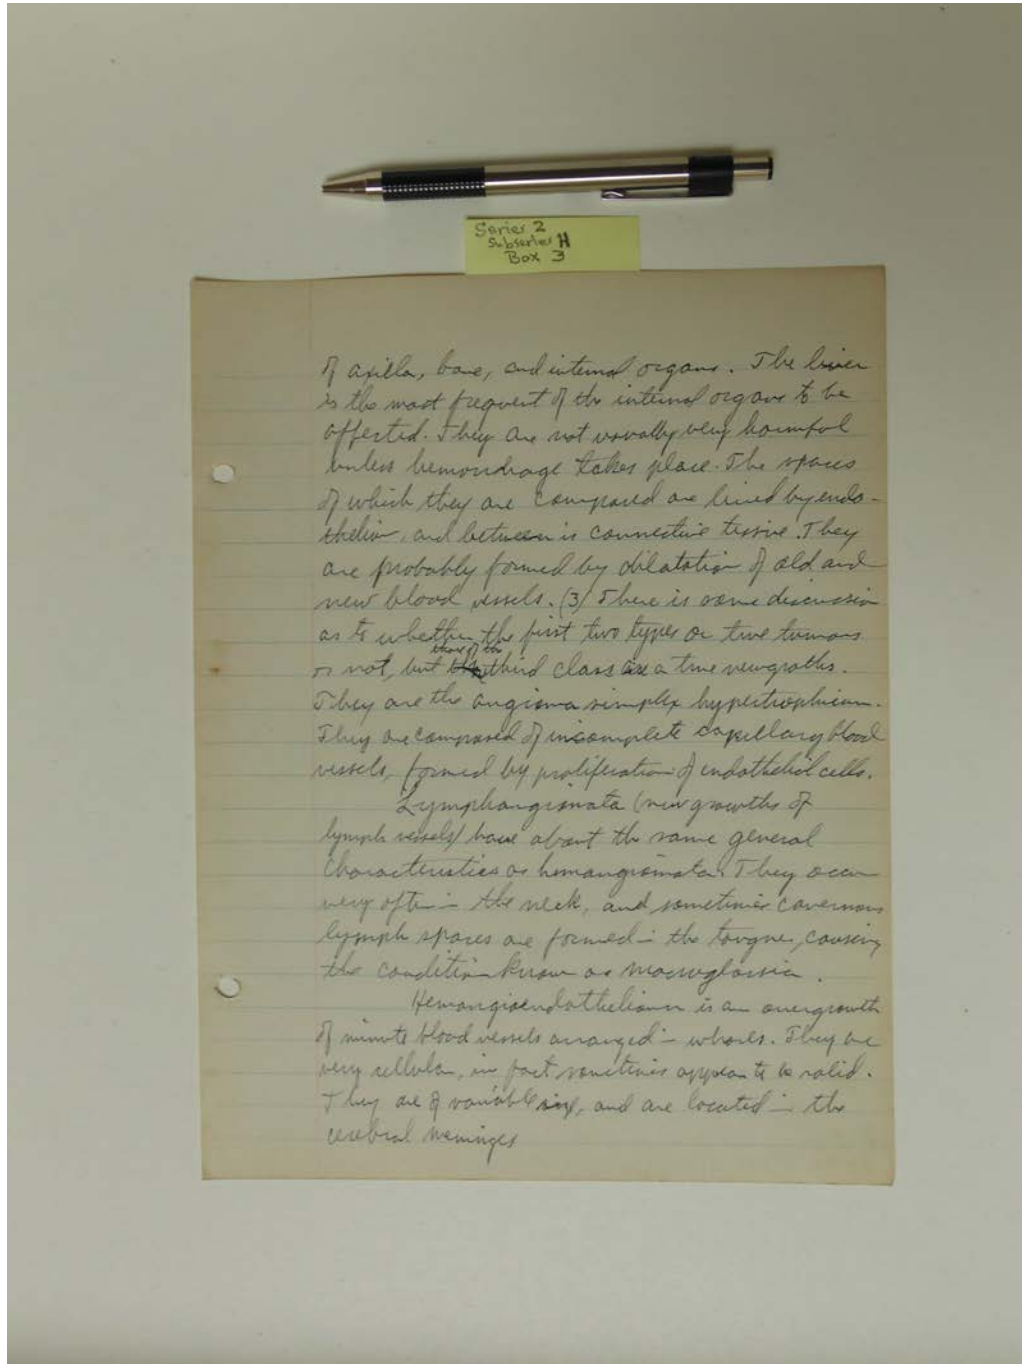 Series 2
Subseries H
Box 3
of axilla, bone, and internal organs. The liver
is the most frequent of the internal organs to be
affected. They are not usually very harmful
unless hemorrhage takes place. The spaces
of which they are composed are lined by endo-
thelium, and between is connective tissue. They
are probably formed by dilatation of old and
new blood vessels. (3) There is some discussion
as to whether the first two types are true tumors
or not, but those of the third class are true newgroths.
They are the angioma simplex hypertrophicum.
They are composed of incomplete capillary blood
vessels, formed by proliferation of endothelial cells.
Lymphangiomata (new growths of
lymph vessels) have about the same general
characteristics as hemangiomata. They occur
very often in the neck, and sometimes cavernous
lymph spaces are formed in the tongue, causing
the condition known as macroglossia.
Hemangioendothelioma is an overgrowth
of minute blood vessels arranged in whorls. They are
very cellular, in fact sometimes appear to be solid.
They are of variable size, and are located in the
cerebral meninges